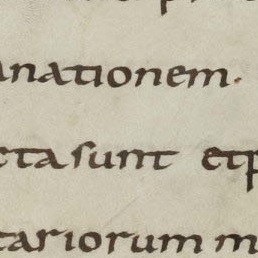 anationem.
cta sunt etp
tariorum m